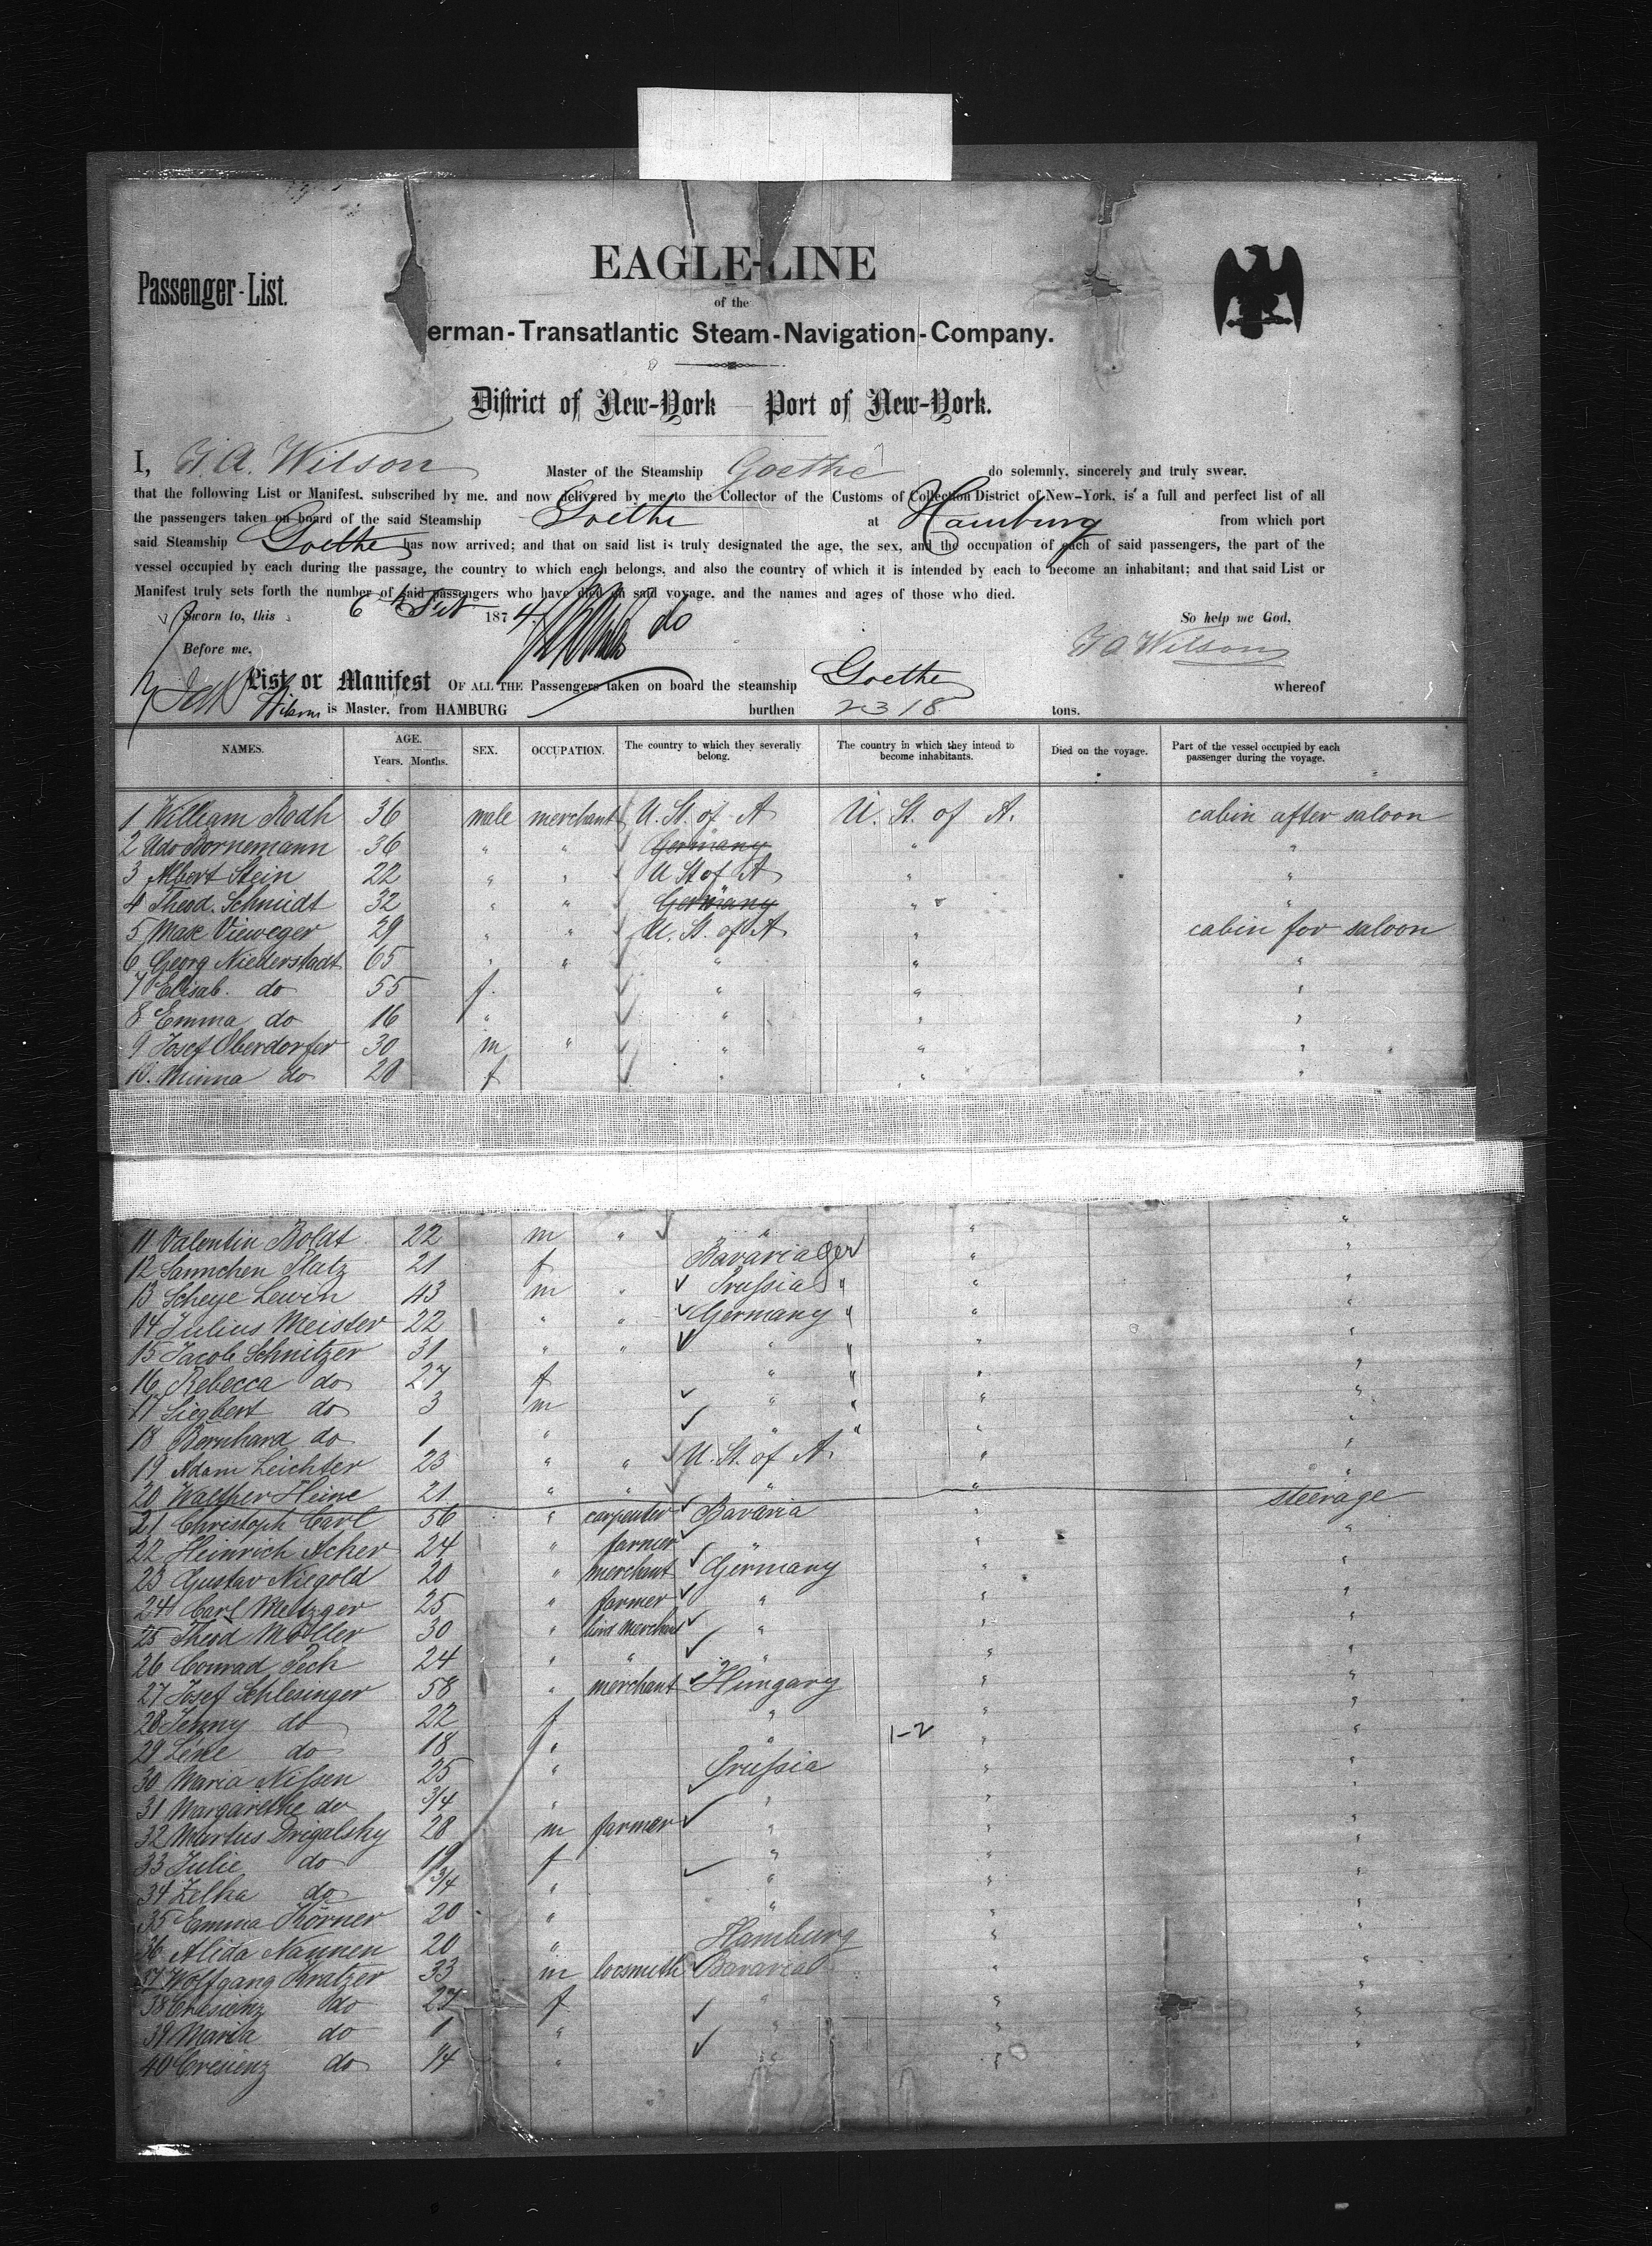 Passenger-List.
EAGLE-LINE
of the
erman-Transatlantic Steam-Navigation-Company.
District of New-York Port of New-York.
I, F. A. Wilson Master of the Steamship Goethe do solemnly, sincerely and truly swear,
that the following List or Manifest, subscribed by me, and now delivered by me to the Collector of the Customs of Collection District of New-York, is a full and perfect list of all
the passengers taken on board of the said Steamship Goethe at Hamburg from which port
said Steamship Goethe has now arrived; and that on said list is truly designated the age, the sex, and the occupation of each of said passengers, the part of the
vessel occupied by each during the passage, the country to which each belongs, and also the country of which it is intended by each to become an inhabitant; and that said List or
Manifest truly sets forth the number of said passengers who have died on said voyage, and the names and ages of those who died.
Sworn to, this 6th 1874 do So help me God,
Before me, Wilson
List or Manifest OF ALL THE Passengers taken on board the steamship Goethe whereof
Wilson is Master, from HAMBURG burthen 2318 tons.
NAMES. AGE. Years. Months. SEX. OCCUPATION. The country to which they severally belong. The country in which they intend to become inhabitants. Died on the voyage. Part of the vessel occupied by each passenger during the voyage.
1 William Rodh 36 male merchant U. St. of A U. St. of A. cabin after saloon
2 Udo Bornemann 36 " " Germany " "
3 Albert Stein 22 " " U St of A " "
4 Theod. Schmidt 32 " " Germany " "
5 Max Vieweger 29 " " U. St. of A " cabin for saloon
6 Georg Niederstadt 65 " " " " "
7 Elisab. do 55 f. " " "
8 Emma do 16 " " " "
9 Josef Oberdorfer 30 m " " " "
10. Minna do 20 f " " "
11 Valentin Boldt 22 m " " " "
12 Sannchen Platz 21 f Bavaria Ger " "
13 Scheye Lewin 43 m " Prussia " " "
14 Julius Meister 22 " " Germany " " "
15 Jacob Schnitzer 31 " " " " " "
16 Rebecca do 27 f " " " "
17 Siegbert do 3 m " " " "
18 Bernhard do 1 " " " " "
19 Adam Leichter 23 " " U. St. of A. " "
20 Walther Heine 21 " " " " "
21 Christoph Carl 56 " carpenter Bavaria " steerage
22 Heinrich Acher 24 " farmer " " "
23 Gustav Niegold 20 " merchant Germany " "
24 Carl Metzger 25 " farmer " " "
25 Theod Möller 30 " bird merchant " " "
26 Conrad Pech 24 " " " " "
27 Josef Schlesinger 58 " merchant Hungary " "
28 Jenny do 22 f " " "
29 Lene do 18 " " 1-2 " "
30 Maria Nissen 25 " Prussia " "
31 Margarethe do 3/4 " " " "
32 Martus Drigalsky 28 m farmer " " "
33 Julie do 19 f " " "
34 Zelka do 3/4 " " " "
35 Emma Körner 20 " " " "
36 Alida Nannen 20 " Hamburg " "
37 Wolfgang Kratzer 33 m locsmith Bavaria " "
38 do 27 f " " "
39 Maria do 1 " " " "
40 Cresienz do 1/4 " " "